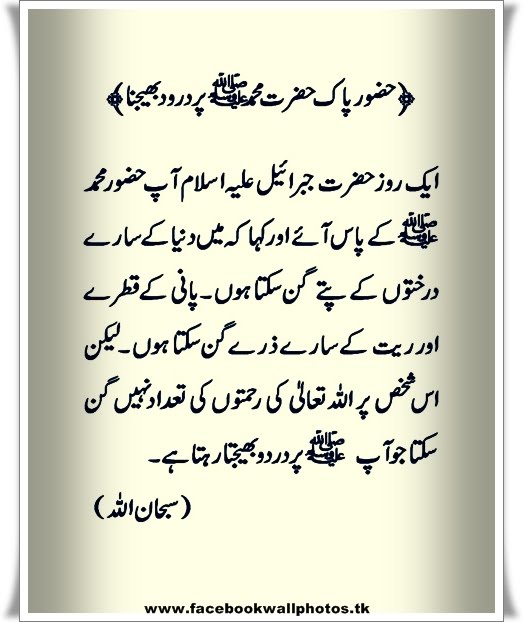 ﴿حضور پاک حضرت محمد ﷺ پر درود بھیجنا﴾
ایک روز حضرت جبرائیل علیہ اسلام آپ حضور محمد
ﷺ کے پاس آئے اور کہا کہ میں دنیا کے سارے
درختوں کے پتے گن سکتا ہوں۔ پانی کے قطرے
اور ریت کے سارے ذرے گن سکتا ہوں۔ لیکن
اس شخص پر اللہ تعالیٰ کی رحمتوں کی تعداد نہیں گن
سکتا جو آپ ﷺ پر دردو بھیجتا رہتا ہے۔
(سبحان اللہ)
www.facebookwallphotos.tk